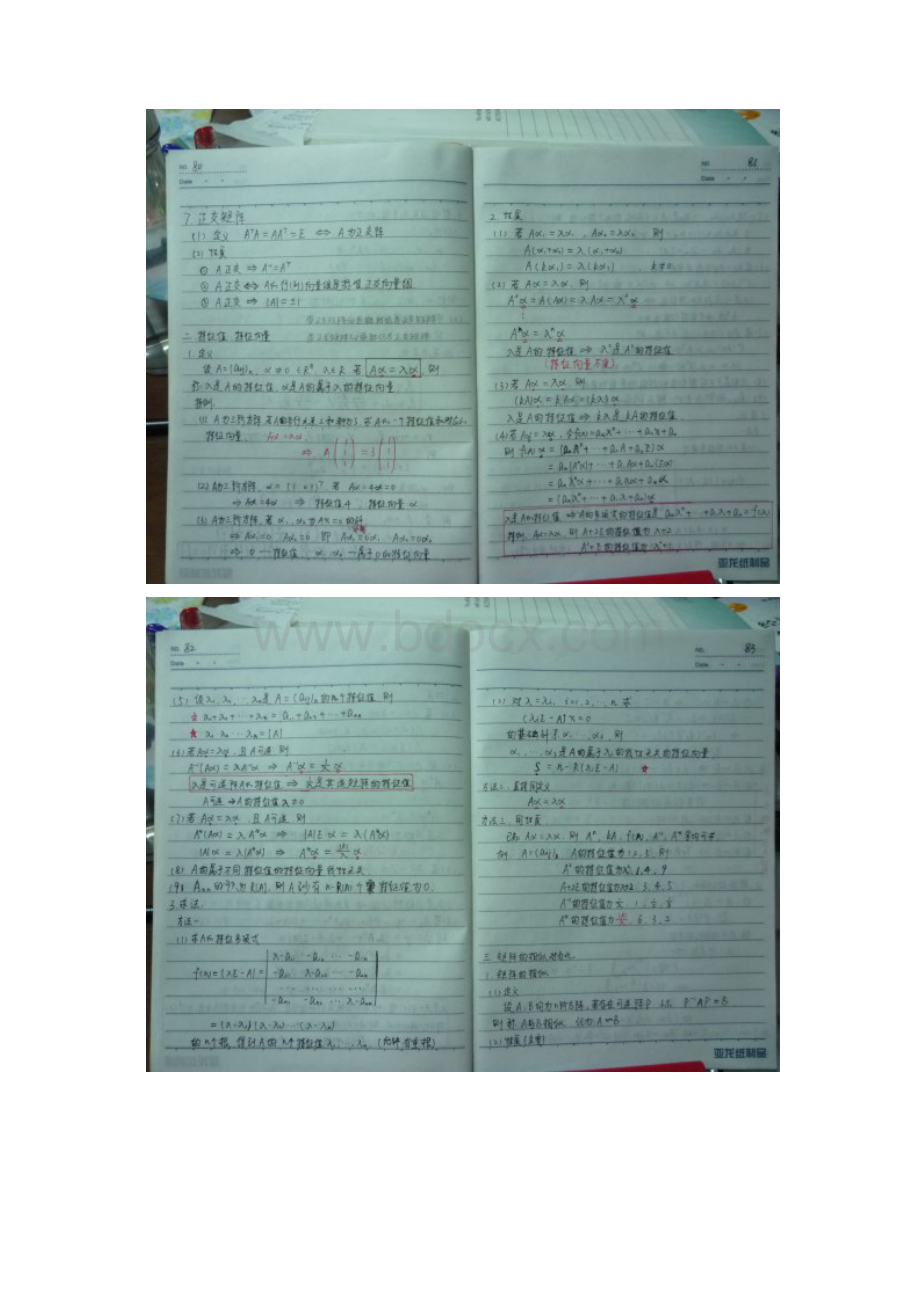 No. 80
Date
7. 正交矩阵
(1) 定义 AᵀA=AAᵀ=E ⇔ A为正交阵
(2) 性质
① A正交 ⇒ A⁻¹=Aᵀ
② A正交 ⇔ A的行(列)向量组是标准正交向量组
③ A正交 ⇒ |A|=±1
二. 特征值、特征向量
1. 定义
设A=(aᵢⱼ)ₙ, α≠0 ∈Rⁿ, λ∈R 若 Aα=λα, 则
称λ是A的特征值, α是A的属于λ的特征向量.
特例.
(1) A为三阶方阵, 若A的各行元素之和都为3, 求A的一个特征值和对应的
特征向量. Aα=λα
⇒ A(1 1 1)=3(1 1 1)
(2) A为三阶方阵, α=(1 0 1)ᵀ 若 Aα-4α=0
⇒ Aα=4α ⇒ 特征值4, 特征向量α
(3) A为三阶方阵, 若α₁, α₂为AX=0的解
⇒ Aα₁=0 Aα₂=0 即 Aα₁=0α₁ Aα₂=0α₂
⇒ 0—特征值, α₁, α₂—属于0的特征向量
No. 81
Date
2. 性质
(1) 若Aα₁=λα₁, Aα₂=λα₂ 则
A(α₁+α₂)=λ(α₁+α₂)
A(kα₁)=λ(kα₁), k≠0
(2) 若Aα=λα, 则
A²α=A(Aα)=λAα=λ²α
⋮
Aⁿα=λⁿα
λ是A的特征值 ⇒ λⁿ是Aⁿ的特征值
(特征向量不变)
(3) 若Aα=λα, 则
(kA)α=kAα=(kλ)α
λ是A的特征值 ⇒ kλ是kA的特征值
(4) 若Aα=λα, 令f(x)=aₙxⁿ+⋯+a₁x+a₀
则 f(A)α=(aₙAⁿ+⋯+a₁A+a₀E)α
=aₙ(Aⁿα)+⋯+a₁Aα+a₀(Eα)
=aₙλⁿα+⋯+a₁λα+a₀α
=(aₙλⁿ+⋯+a₁λ+a₀)α
λ是A的特征值 ⇒ A的多项式的特征值是 aₙλⁿ+⋯+a₁λ+a₀=f(λ)
特例. Aα=λα 则 A+2E的特征值为λ+2
A²+E的特征值为λ²+1
亚龙纸制品
www.bdocx.com
No. 82
Date
(5) 设λ₁, λ₂, ⋯, λₙ是A=(aᵢⱼ)ₙ的n个特征值, 则
★ λ₁+λ₂+⋯+λₙ=a₁₁+a₂₂+⋯+aₙₙ
★ λ₁λ₂⋯λₙ=|A|
(6) 若Aα=λα, 且A可逆, 则
A⁻¹(Aα)=λA⁻¹α ⇒ A⁻¹α=1/λ α
λ是可逆阵A的特征值 ⇒ 1/λ是其逆矩阵的特征值
A可逆 ⇒ A的特征值λ≠0
(7) 若Aα=λα, 且A可逆 则
A*(Aα)=λA*α ⇒ |A|Eα=λ(A*α)
|A|α=λ(A*α) ⇒ A*α=|A|/λ α
(8) A的属于不同特征值的特征向量线性无关
(9) Aₙₓₙ的秩为R(A), 则A至少有n-R(A)个特征值为0.
3. 求法.
方法一.
(1) 求A的特征多项式
f(λ)=|λE-A|= | λ-a₁₁ -a₁₂ ⋯ -a₁ₙ
-a₂₁ λ-a₂₂ ⋯ -a₂ₙ
⋯ ⋯ ⋯ ⋯
-aₙ₁ -aₙ₂ ⋯ λ-aₙₙ |
=(λ-λ₁)(λ-λ₂)⋯(λ-λₙ)
的n个根, 得到A的n个特征值λ₁, ⋯, λₙ (允许有重根)
No. 83
Date
(2) 对λ=λᵢ, i=1, 2, ⋯, n 求
(λᵢE-A)x=0
的基础解系α₁, ⋯, αₛ, 则
α₁, ⋯, αₛ是A的属于λᵢ的线性无关的特征向量
S=n-R(λᵢE-A) ★
方法二. 直接用定义
Aα=λα
方法三. 用性质
已知Aα=λα, 则 Aⁿ, kA, f(A), A⁻¹, A*
例. A=(aᵢⱼ)₃ A的特征值为1, 2, 3, 则
A²的特征值为 1, 4, 9
A+2E的特征值为 3, 4, 5
A⁻¹的特征值为 1, 1/2, 1/3
A*的特征值为 6, 3, 2
三. 矩阵的相似对角化.
1. 矩阵的相似
(1) 定义
设A, B均为n阶方阵, 若存在可逆阵P s.t. P⁻¹AP=B
则称A与B相似, 记为A∽B
(2) 性质(主要)
亚龙纸制品